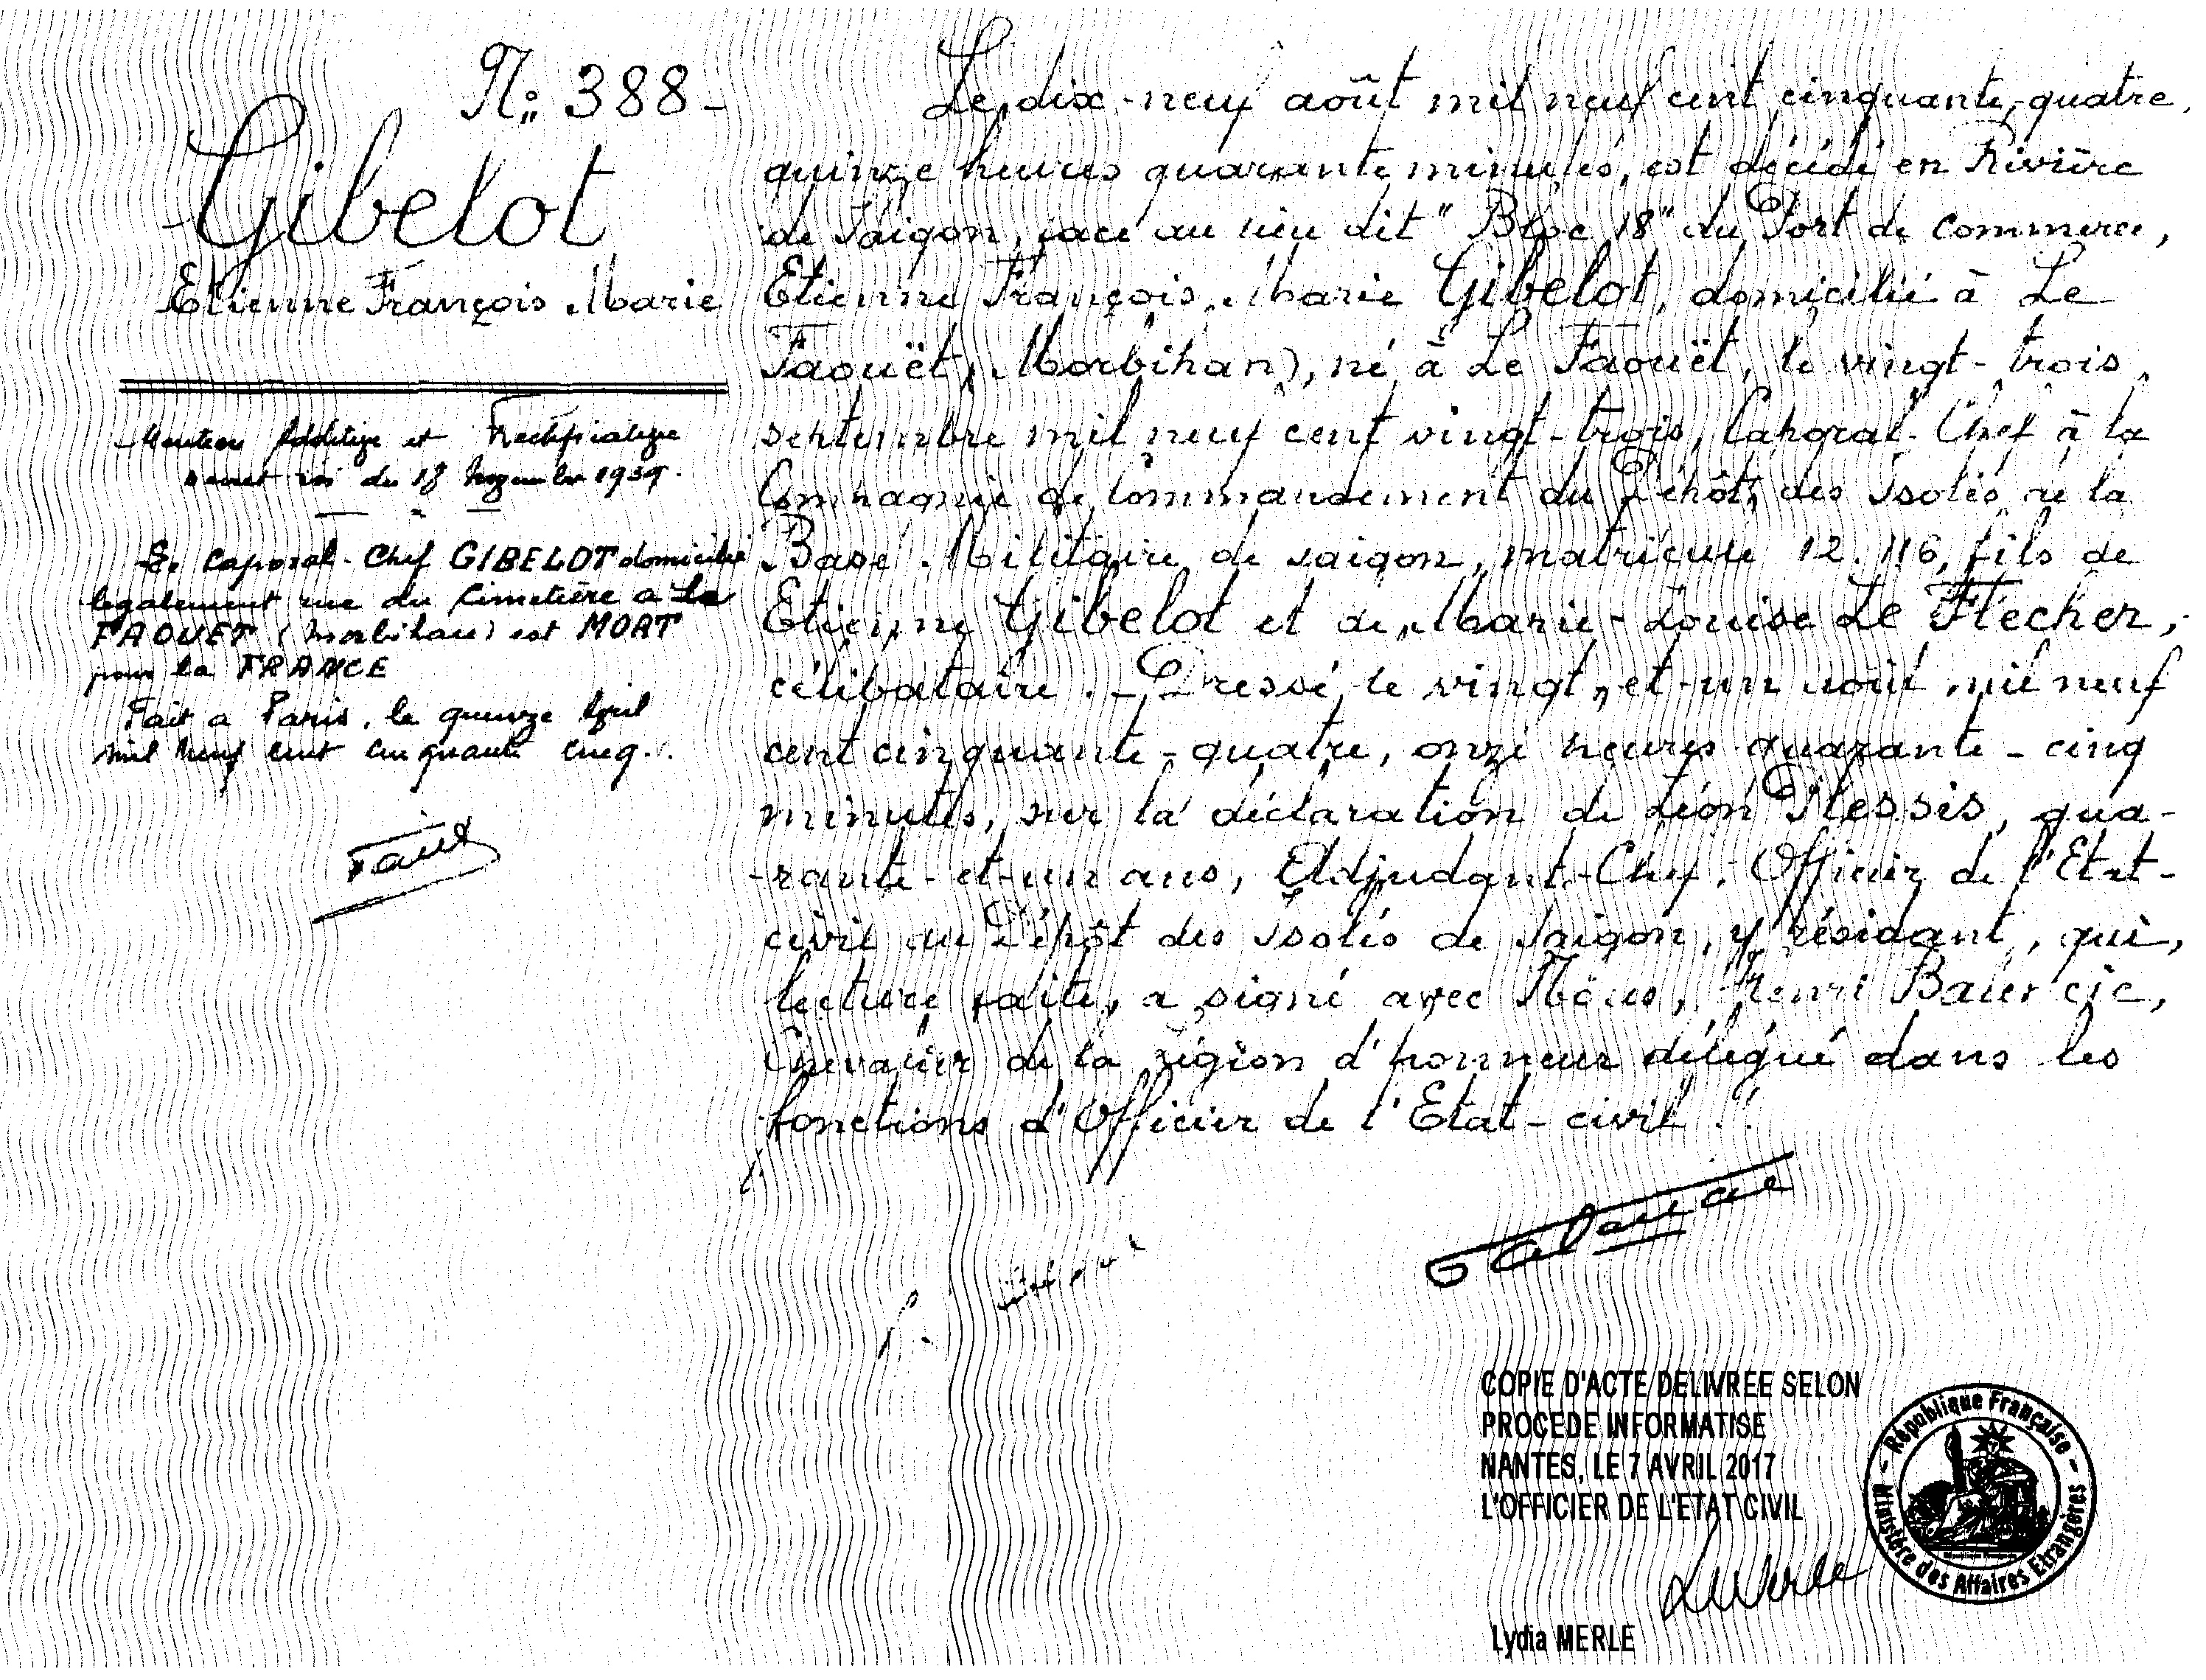 N° 388 -
Gibelot
Etienne François Marie
Mention Additive et Rectificative
décret loi du 18 Novembre 1939.
Le Caporal-Chef GIBELOT domicilié
légalement rue du Cimetière à Le
FAOUET (Morbihan) est MORT
pour la FRANCE
Fait à Paris, le quinze Avril
mil neuf cent cinquante cinq.
Le dix-neuf août mil neuf cent cinquante-quatre,
quinze heures quarante minutes, est décédé en Rivière
de Saigon, face au lieu dit "Bloc 18" du Port de Commerce,
Etienne François, Marie Gibelot, domicilié à Le
Faouët, (Morbihan), né à Le Faouët, le vingt-trois
septembre mil neuf cent vingt-trois, Caporal-Chef à la
Compagnie de Commandement du Dépôt des Isolés de la
Base Militaire de Saigon, matricule 12.116, fils de
Etienne Gibelot et de Marie-Louise Le Flécher,
célibataire. - Dressé le vingt-et-un août mil neuf
cent cinquante-quatre, onze heures quarante-cinq
minutes, sur la déclaration de Léon Plessis, qua-
-rante-et-un ans, Adjudant-Chef, Officier de l'Etat-
civil au Dépôt des Isolés de Saigon, y résidant, qui,
lecture faite, a signé avec Nous, Henri
Chevalier de la Légion d'honneur délégué dans les
fonctions d'Officier de l'Etat-civil ./.
COPIE D'ACTE DELIVREE SELON
PROCEDE INFORMATISE
NANTES, LE 7 AVRIL 2017
L'OFFICIER DE L'ETAT CIVIL
Lydia MERLE
République Française
Ministère des Affaires Etrangères